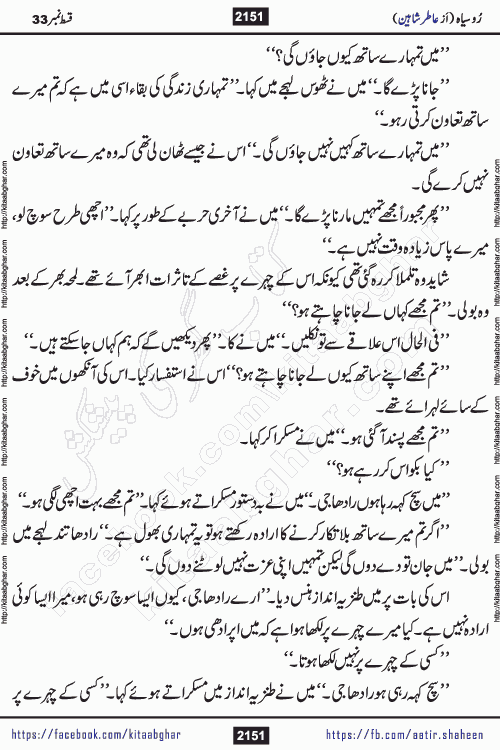 رُوسیاہ (اَز عاطر شاہین) 2151 قسط نمبر 33
’’میں تمہارے ساتھ کیوں جاؤں گی؟‘‘
’’جانا پڑے گا۔‘‘ میں نے ٹھوس لہجے میں کہا۔ ’’تمہاری زندگی کی بقاء اسی میں ہے کہ تم میرے
ساتھ تعاون کرتی رہو۔‘‘
’’میں تمہارے ساتھ کہیں نہیں جاؤں گی۔‘‘ اس نے جیسے ٹھان لی تھی کہ وہ میرے ساتھ تعاون
نہیں کرے گی۔
’’پھر مجبوراً مجھے تمہیں مارنا پڑے گا۔‘‘ میں نے آخری حربے کے طور پر کہا۔ ’’اچھی طرح سوچ لو،
میرے پاس زیادہ وقت نہیں ہے۔‘‘
شاید وہ تلملا کر رہ گئی تھی کیونکہ اس کے چہرے پر غصے کے تاثرات ابھر آئے تھے۔ لمحہ بھر کے بعد
وہ بولی۔ ’’تم مجھے کہاں لے جانا چاہتے ہو؟‘‘
’’فی الحال اس علاقے سے تو نکلیں۔‘‘ میں نے کا۔ ’’پھر دیکھیں گے کہ ہم کہاں جا سکتے ہیں۔‘‘
’’تم مجھے اپنے ساتھ کیوں لے جانا چاہتے ہو؟‘‘ اس نے استفسار کیا۔ اس کی آنکھوں میں خوف
کے سائے لہرائے تھے۔
’’تم مجھے پسند آ گئی ہو۔‘‘ میں نے مسکرا کر کہا۔
’’کیا بکواس کر رہے ہو؟‘‘
’’میں سچ کہہ رہا ہوں رادھا جی۔‘‘ میں نے بہ دستور مسکراتے ہوئے کہا۔ ’’تم مجھے بہت اچھی لگی ہو۔‘‘
’’اگر تم میرے ساتھ بلاتکار کرنے کا ارادہ رکھتے ہو تو یہ تمہاری بھول ہے۔‘‘ رادھا تند لہجے میں
بولی۔ ’’میں جان تو دے دوں گی لیکن تمہیں اپنی عزت نہیں لوٹنے دوں گی۔‘‘
اس کی بات پر میں طنزیہ انداز ہنس دیا۔ ’’ارے رادھا جی، کیوں ایسا سوچ رہی ہو، میرا ایسا کوئی
ارادہ نہیں ہے۔ کیا میرے چہرے پر لکھا ہوا ہے کہ میں اپرادھی ہوں۔‘‘
’’کسی کے چہرے پر نہیں لکھا ہوتا۔‘‘
’’سچ کہہ رہی ہو رادھا جی۔‘‘ میں نے طنزیہ انداز میں مسکراتے ہوئے کہا۔ ’’کسی کے چہرے پر
https://facebook.com/kitaabghar 2151 https://fb.com/aatir.shaheen
http://kitaabghar.com http://kitaabghar.com http://kitaabghar.com http://kitaabghar.com http://kitaabghar.com http://kitaabghar.com
http://kitaabghar.com http://kitaabghar.com http://kitaabghar.com http://kitaabghar.com http://kitaabghar.com http://kitaabghar.com
کتاب گھر کی پیشکش
facebook.com/kitaabghar
kitaabghar.com